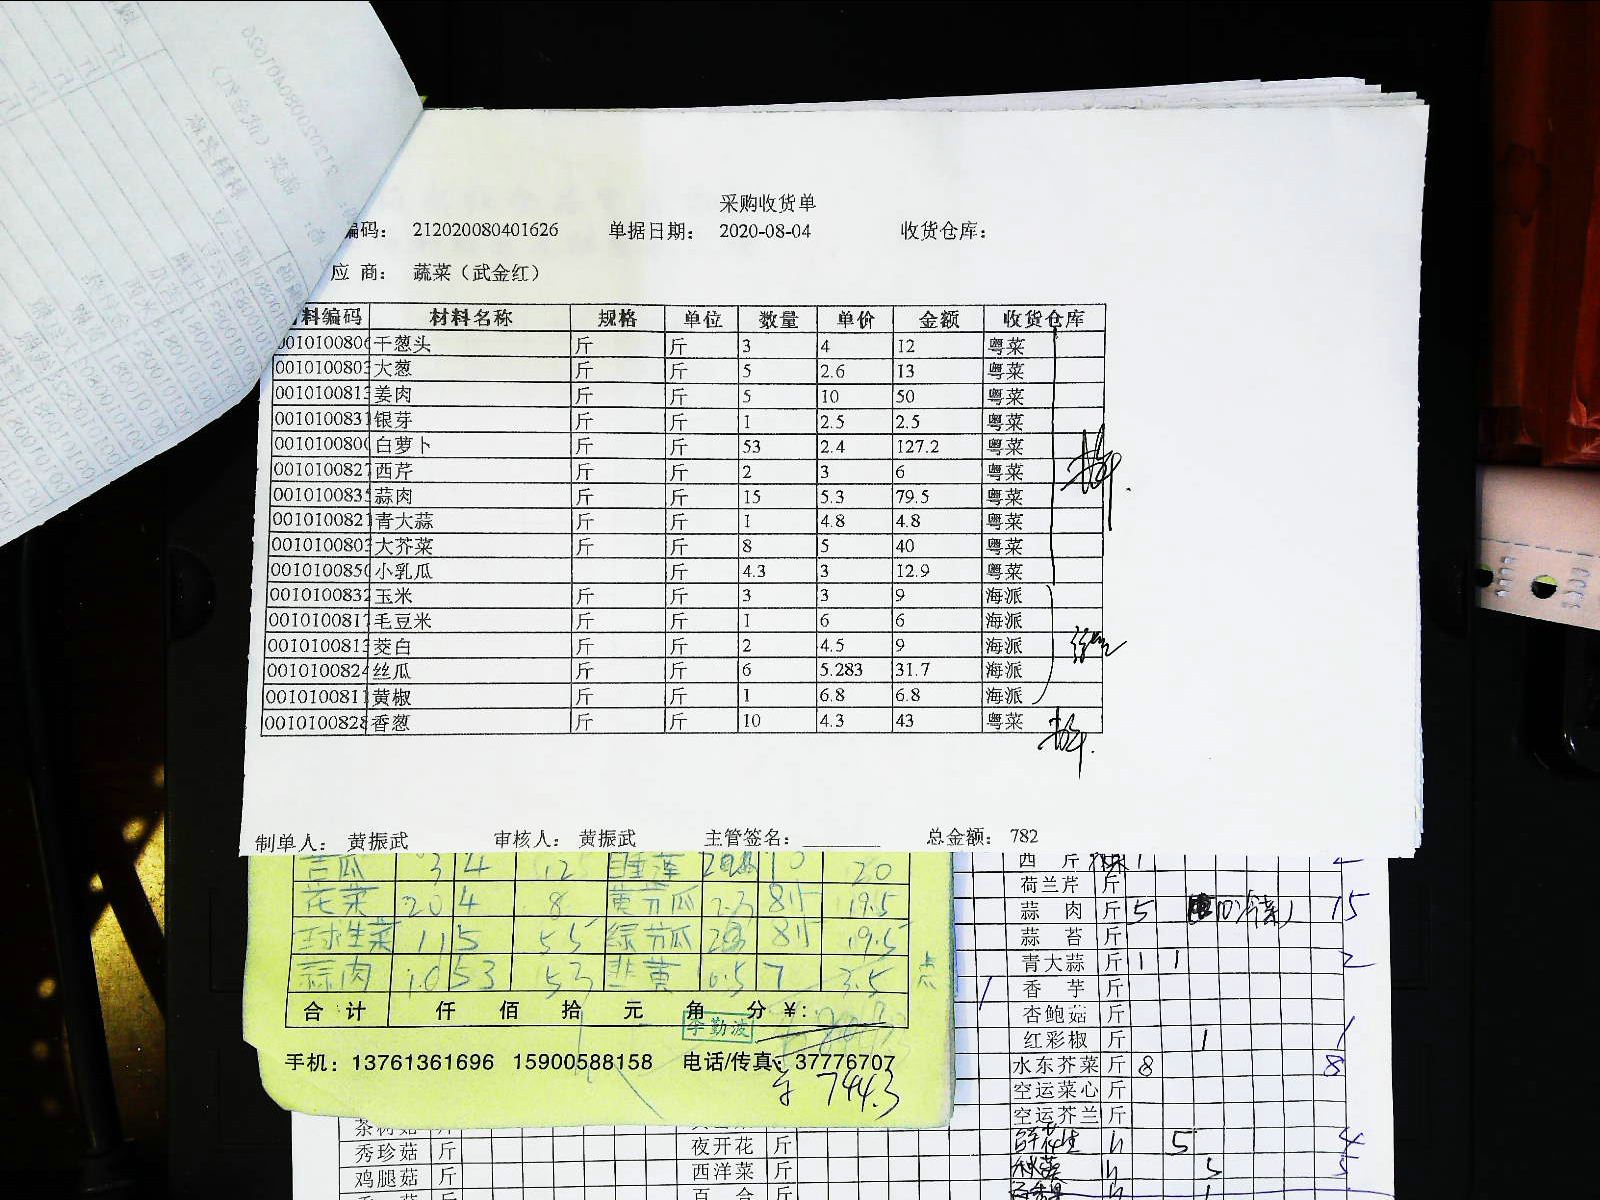 采购收货单
编码: 212020080401626 单据日期: 2020-08-04 收货仓库:
应 商: 蔬菜（武金红）
料编码 材料名称 规格 单位 数量 单价 金额 收货仓库
0010100806 干葱头 斤 斤 3 4 12 粤菜
0010100803 大葱 斤 斤 5 2.6 13 粤菜
0010100813 姜肉 斤 斤 5 10 50 粤菜
0010100831 银芽 斤 斤 1 2.5 2.5 粤菜
0010100800 白萝卜 斤 斤 53 2.4 127.2 粤菜
0010100827 西芹 斤 斤 2 3 6 粤菜
0010100835 蒜肉 斤 斤 15 5.3 79.5 粤菜
0010100821 青大蒜 斤 斤 1 4.8 4.8 粤菜
0010100803 大芥菜 斤 斤 8 5 40 粤菜
0010100850 小乳瓜 斤 4.3 3 12.9 粤菜
0010100832 玉米 斤 斤 3 3 9 海派
0010100817 毛豆米 斤 斤 1 6 6 海派
0010100813 茭白 斤 斤 2 4.5 9 海派
0010100824 丝瓜 斤 斤 6 5.283 31.7 海派
0010100811 黄椒 斤 斤 1 6.8 6.8 海派
0010100828 香葱 斤 斤 10 4.3 43 粤菜
制单人: 黄振武 审核人: 黄振武 主管签名: 总金额: 782
吉瓜 3 4 12 20
花菜 20 4 8 黄节瓜 2.3 8.5 19.5
球生菜 11 5 55 绿节瓜 8.5 19.5
蒜肉 10 53 53 韭黄 0.5 7 3.5
合 计 仟 佰 拾 元 角 分 ¥:
李勤波
手机: 13761361696 15900588158 电话/传真: 37776707
744.3
西 斤 1
荷兰芹 斤
蒜 肉 斤 5 15
蒜 苔 斤
青大蒜 斤 1 1 2
香 芋 斤
杏鲍菇 斤
红彩椒 斤 1 1
水东芥菜 斤 8 8
空运菜心 斤
空运芥兰 斤
5 4
秋葵 5 5
茶树菇 斤
秀珍菇 斤
鸡腿菇 斤
夜开花 斤
西洋菜 斤
百 合 斤